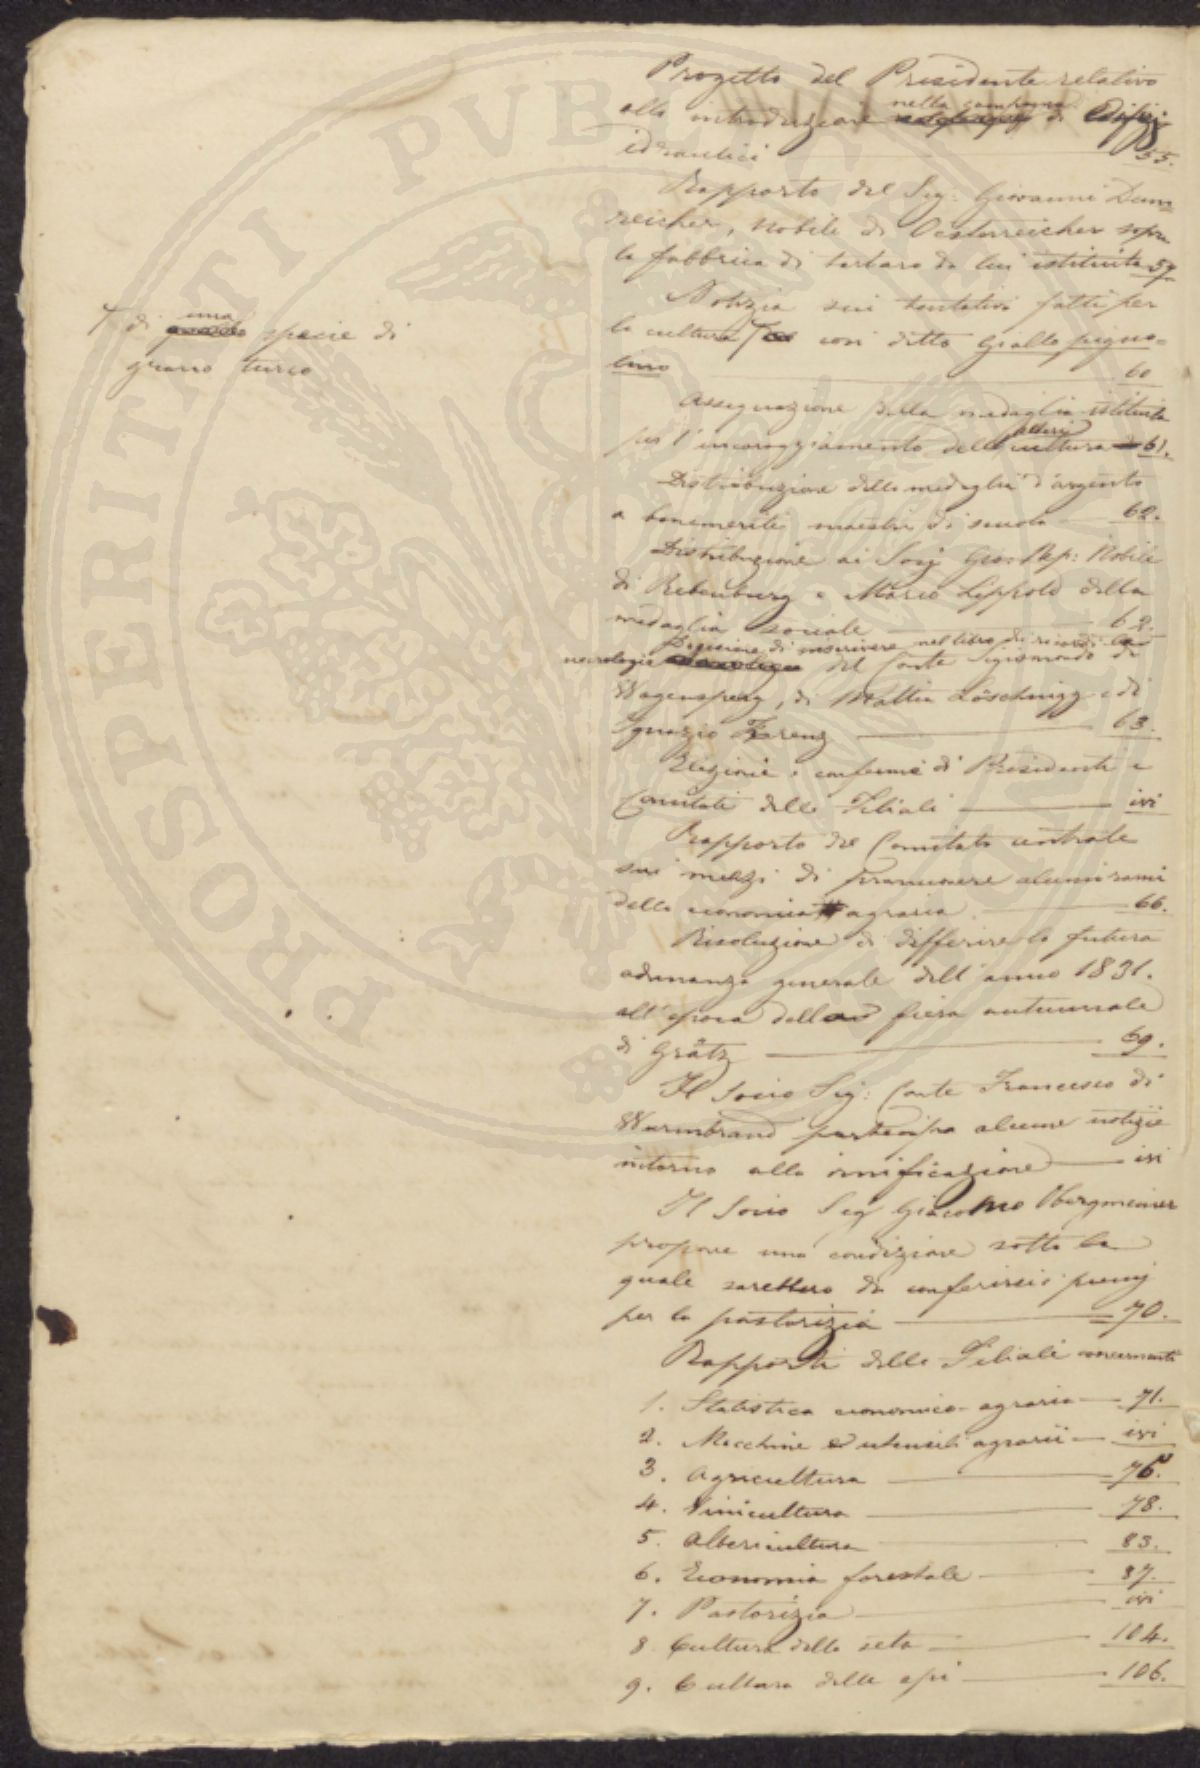 Progetto del Presidente relativo
alla introduzione nella campagna di Edifizj
idraulici 55.
Rapporto del Sig: Giovanni Dum=
reicher, Nobile di Oesterreicher sopra
la fabbrica di tartaro da lui istituita 57
Notizia sui tentativi fatti per
la cultura così ditto Giallo pigno=
lino 60
di una specie di
grano turco
Assegnazione della medaglia istituita
per l'incoraggiamento dell' cultura 61.
Distribuzione delle medaglie d'argento
a benemeriti maestri di scuola 62.
Distribuzione ai Socj Gio: Nep: Nobile
di Rebenburg e Marco Lippold della
medaglia sociale 62.
Decisione di inscrivere nel libro di ricordi la
necrologia del Conte Sigismondo di
Wagensperg, di Mattia Löschnigg e di
Ignazio Zerenz 63.
Elezioni e conferme di Presidenti e
Comitati delle Filiali ivi
Rapporto del Comitato centrale
sui mezzi di promuovere alcuni rami
della economia agraria 66.
Risoluzione di differire la futura
adunanza generale dell' anno 1831.
all' epoca della fiera autunnale
di Grätz 69.
Il Socio Sig: Conte Francesco di
Wurmbrand partecipa alcune notizie
intorno alla vinificazione ivi
Il Socio Sig Giacomo Obergmeiner
propone una condizione sotto la
quale sarebbero da conferirsi premj
per la pastorizia 70.
Rapporti delle Filiali concernenti
1. Statistica economico-agraria 71.
2. Macchine ed utensili agrarii ivi
3. Agricultura 76.
4. Vinicultura 78.
5. Albericultura 83.
6. Economia forestale 87.
7. Pastorizia ivi
8 Cultura della seta 104.
9. Cultura delle api 106.
PROSPERITATI PUBLICAE